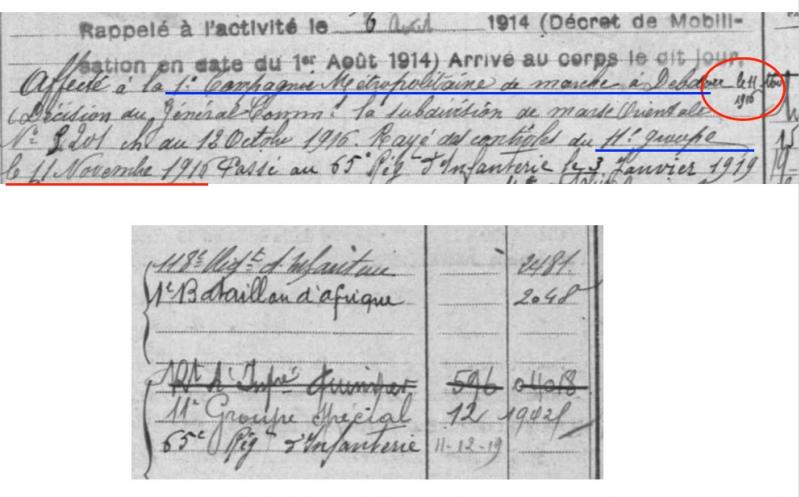 Rappelé à l'activité le 6 Août 1914 (Décret de Mobili-
sation en date du 1er Août 1914) Arrivé au corps le dit jour.
Affecté à la 1e Compagnie Métropolitaine de marche à Debdou le 11 Nov
1916
(Décision du Général Commt la subdivision de Maroc Orientale
No 9201 ch du 12 Octobre 1916. Rayé des contrôles du 11e groupe
le 11 Novembre 1916 Passé au 65e Régt d'Infanterie le 3 Janvier 1919
118e Régt d'Infanterie 2481.
1e Bataillon d'afrique 2048
Rt d'Infrie Quimper 596 0408
11e Groupe spécial 12
65e Régt d'Infanterie 11-12-19